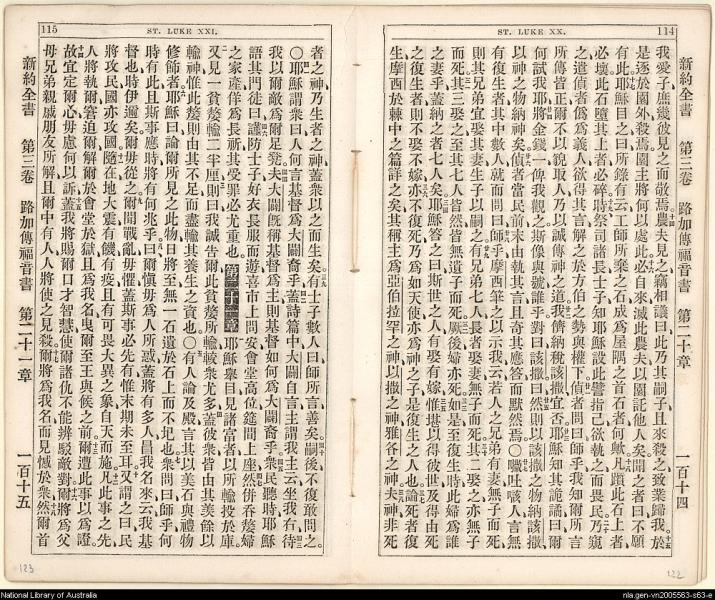 114
ST. LUKE XX.
新約全書 第三卷 路加傳福音書 第二十章 一百十四
我愛子庶幾彼見之而敬焉農夫見之竊相議曰此乃其嗣子且來殺之致業歸我於
是逐於園外殺焉園主將何以處此必自來滅此農夫以園託他人矣聞之者曰不願
有此耶穌目之曰所錄有云工師所棄之石成爲屋隅之首石者何歟凡躓此石上者
必壞此石墮其上者必碎時祭司諸長士子知耶穌設此譬指己欲執之而畏民乃窺
之遣偵者僞爲義人欲得其言解之於方伯之勢與權下偵者問曰師乎我知爾所言
所傳皆正爾不以貌取人乃以誠傳神之道我儕納稅該撒宜否耶穌知其詭譎曰爾
何試我耶將金錢一俾我觀之斯像與號誰乎對曰該撒曰然則以該撒之物納該撒
以神之物納神矣偵者當民前未由執其言且奇其應答而默然焉〇𠵽吐該人言無
有復生者其中數人就而問曰師乎摩西筆之以示我云若人之兄弟有妻無子而死
則其兄弟宜娶其妻生子以嗣之有兄弟七人長者娶妻無子而死其二娶之亦無子
而死其三娶之至其七人皆然皆無遺子而死厥後婦亦死如是至復生時此婦爲誰
之妻乎蓋納之者七人矣耶穌答之曰斯世之人有娶有嫁惟堪以得彼世及得由死
之復生者則不娶不嫁亦不復能死乃爲如天使亦爲神之子是復生之人也論死者復
生摩西於棘中之篇詳之矣其稱主爲亞伯拉罕之神以撒之神雅各之神夫神非死
115
ST. LUKE XXI.
者之神乃生者之神蓋衆以之而生矣有士子數人曰師所言善矣嗣後不復敢問之
〇耶穌謂衆曰人何言基督爲大闢裔乎蓋詩篇中大闢自言主謂我主云坐我右待
我以爾敵爲爾足凳夫大闢旣稱基督爲主則基督如何爲大闢裔乎衆民聽時耶穌
語其門徒曰謹防士子好衣長服而遊喜市上問安會堂高位筵間上座然併吞嫠婦
之家產佯爲長祈其受罪必尤重也 第二十一章 耶穌舉目見諸富者以所輸投於庫
又見一貧嫠輸二半厘則曰我誠告爾此貧嫠所輸較衆尤多蓋彼衆皆由其羨餘以
輸神惟此嫠則由其不足而盡輸其養生之資也〇有人論及殿言其以美石與禮物
修飾者耶穌曰論爾所見之此物日將至無一石遺於石上而不圯也衆問曰師乎何
時有此且斯事應時將有何兆乎曰爾愼毋爲人所惑蓋將有多人冒我名來云我基
督也時伊邇矣爾毋從之爾聞戰亂毋懼蓋斯事必先有惟末期未至耳又謂之曰民
將攻民國亦攻國隨在地大震有饑有疫且有可畏大異之象自天而施凡此事之先
人將執爾窘迫爾解爾於會堂於獄且爲我名曳爾至王與侯之前爾遭此事以爲證
故宜定爾心毋慮何以訴蓋我將賜爾口才智慧使爾諸仇不能辨駁敵對爾將爲父
母兄弟親戚朋友所解且爾中有人將使之見殺爾將爲我名而見憾於衆然爾首
新約全書 第三卷 路加傳福音書 第二十一章 一百十五
123
122
National Library of Australia
nla.gen-vn2005563-s63-e